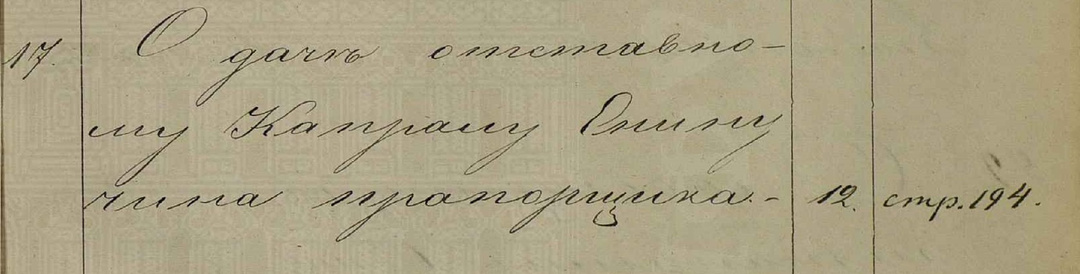 17. О дачѣ отставно-
му Капралу Енину
чина прапорщика. - 12. стр. 194.